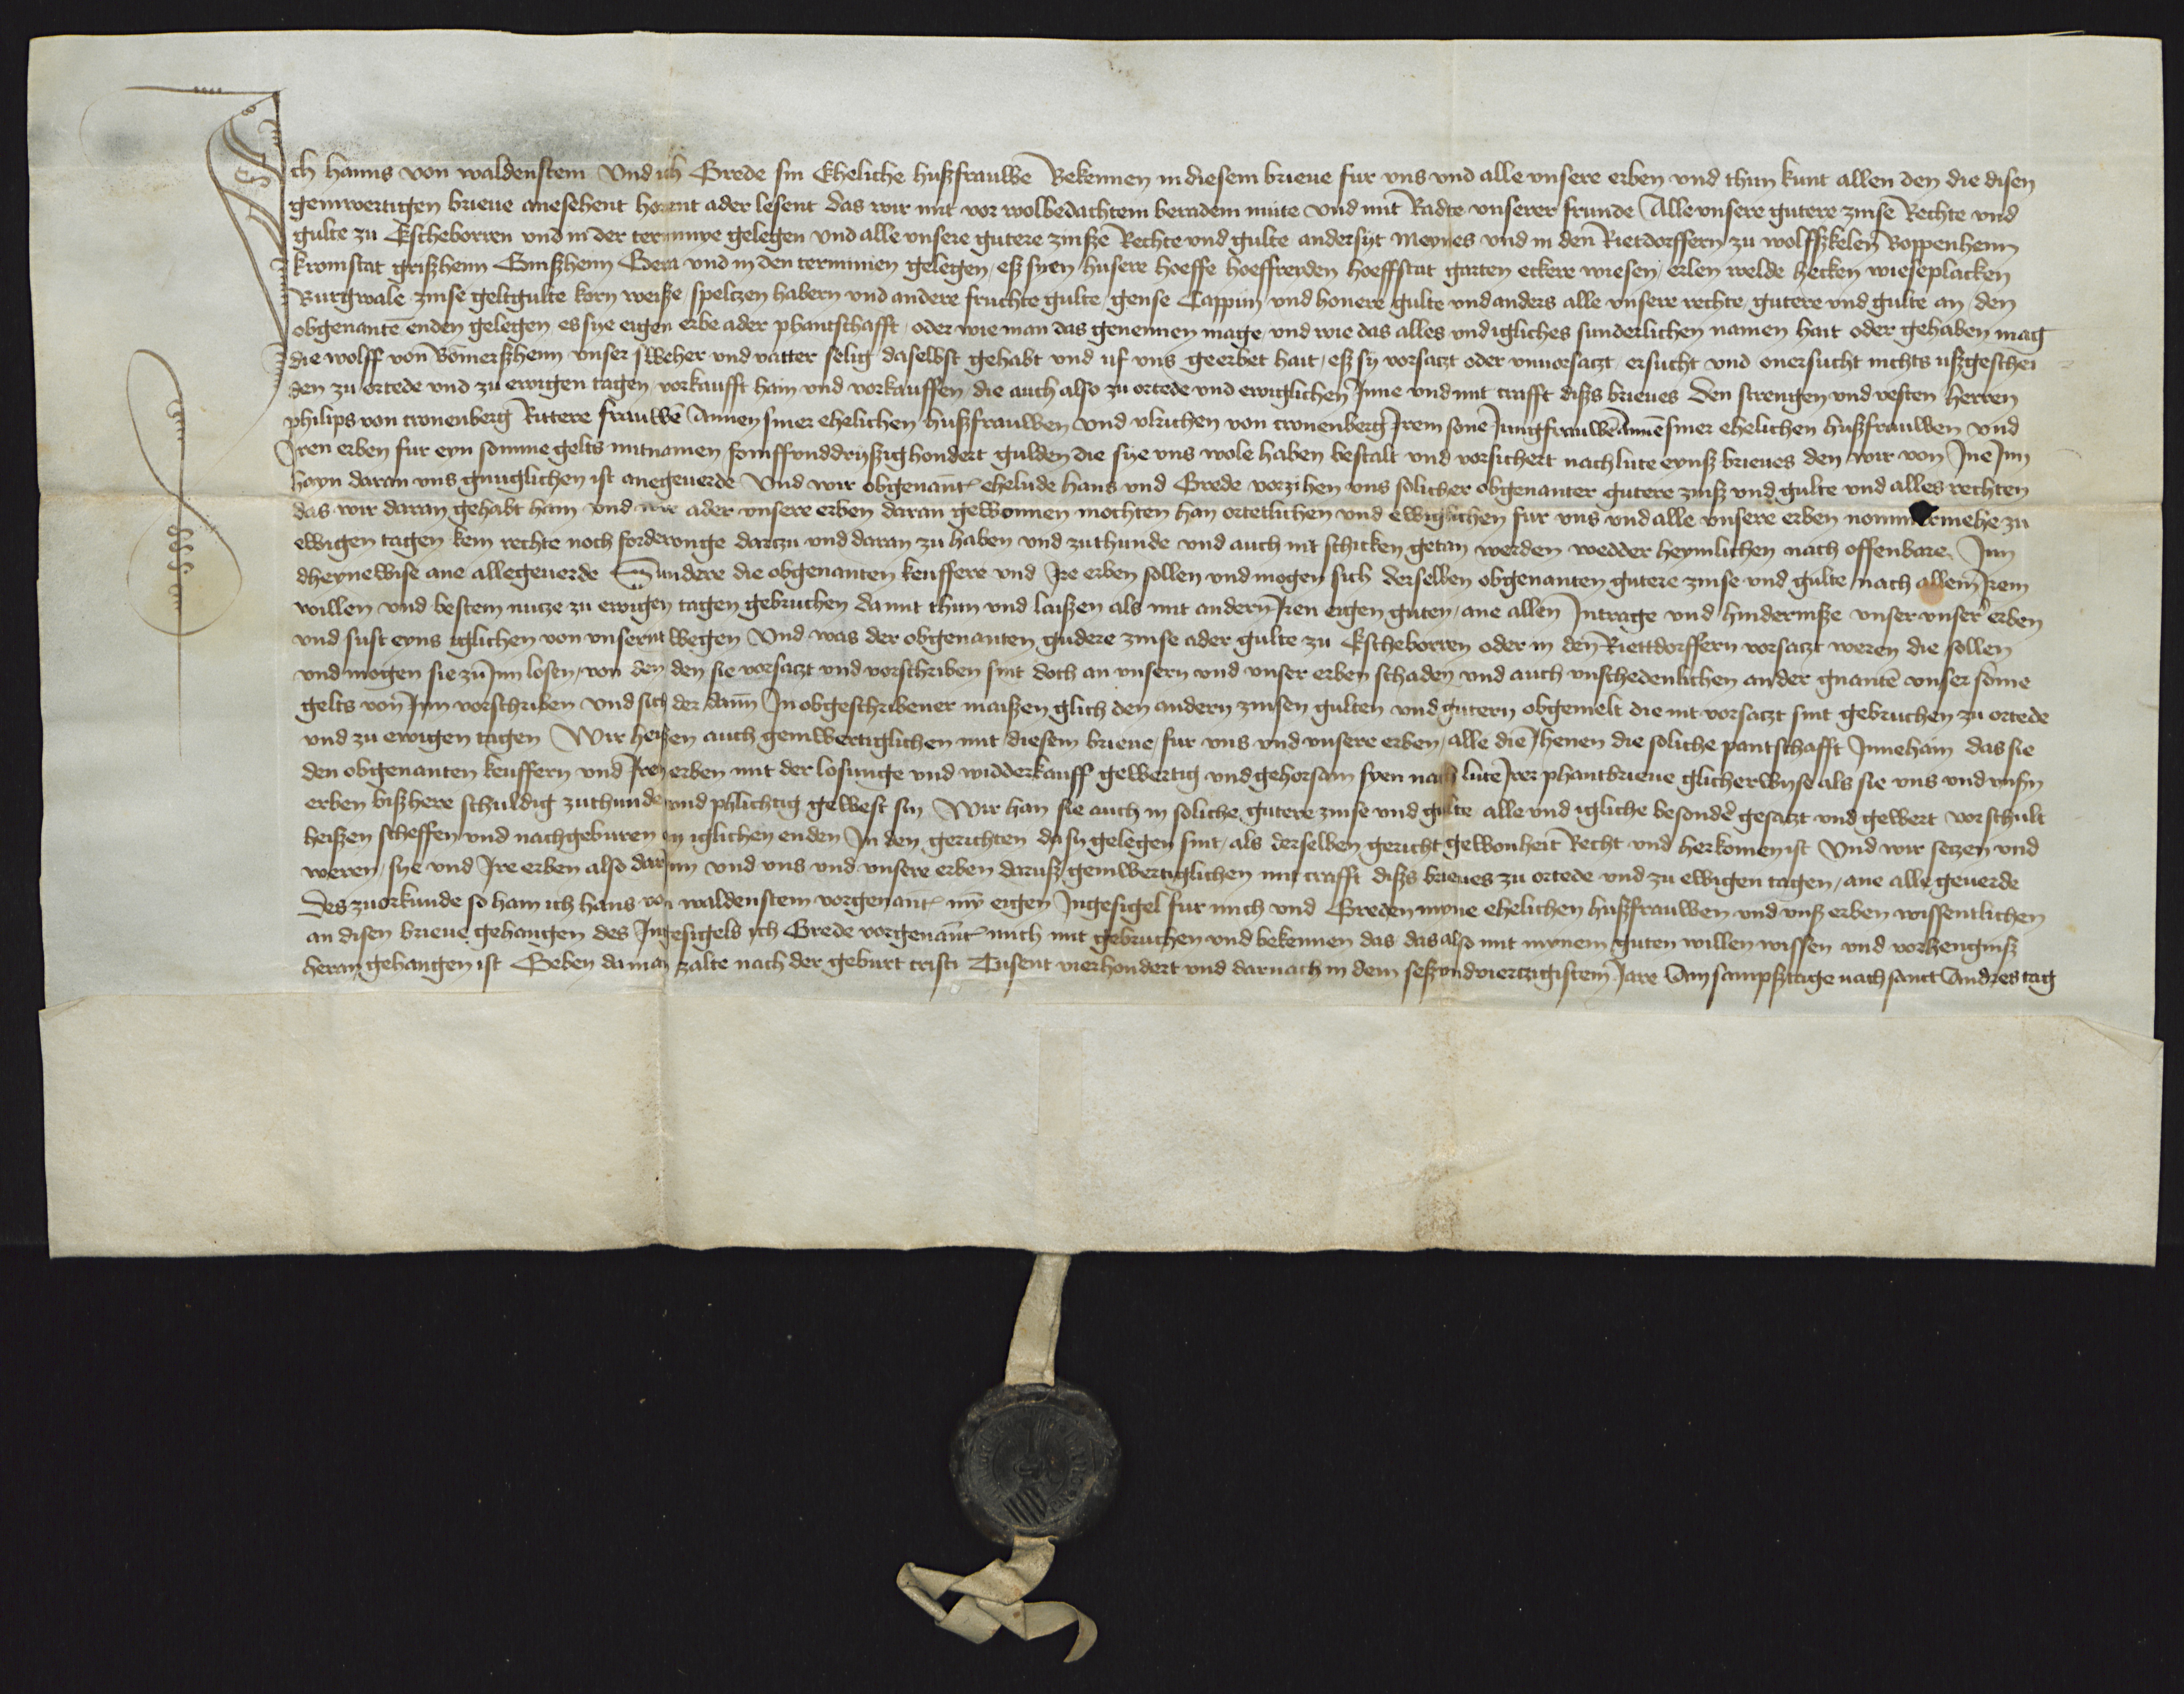 Ich Hanns von waldenstein Und ich Grede sin Eheliche hußfrauwe Bekennen in diesem brieue fur vns vnd alle vnsere erben vnd thun kunt allen den die disen
geinwertigen brieue anesehent horent ader lesent das wir mit vor wolbedachtem beradem mute vnd mit Radte vnserer frunde Alle vnsere gutere zinse Rechte vnd
gulte zu Escheborren vnd in der terminye gelegen vnd alle vnsere gutere zinße Rechte vnd gulte andersijt Meynes vnd in den Rietdorffern zu wolffßkelen Boppenheim
kromstat grißheim Ginßheim Gera vnd in den terminien gelegen, eß syen husere hoeffe hoeffreyden hoeffstat garten eckere wiesen, erlen welde hecken wieseplacken
Burgwale zinse geltgulte korn weiße speltzen habern vnd andere fruchte gulte, gense Cappun vnd honere gulte vnd anders alle vnsere rechte, gutere vnd gulte an den
obgenanten enden gelegen, es sye eigen erbe ader phantschafft, oder wie man das genennen mage, vnd wie das alles vnd igliches sunderlichen namen hait oder gehaben mag
die wolff von Bomerßheim vnser sweher vnd vatter selig daselbst gehabt vnd uf vns geerbet hait, eß sy vorsatzt oder vnuorsatzt, ersucht vnd onersucht nichts ußgeschei
den zu ortede vnd zu ewigen tagen vorkaufft hain vnd vorkauffen, die auch also zu ortede vnd ewiglichen Jnne vnd mit crafft dißs brieues den strengen vnd vesten Herren
philips von cronenberg Rittere frauwe Annen siner ehelichen hußfrauwen vnd vlrichen von cronenberg Jrem sone Jungfrauwe Anne siner ehelichen hußfrauwen vnd
Jren erben fur eyn somme gelts mitnamen fonffvnddryßighondert gulden die sye vns wole haben bestalt vnd vorsichert nach lute eynß brieues den wir von Jne Jnn
hayn daran vns gnuglichen ist anegeuerde Vnd wir obgenant ehelude Hans vnd Grede vorzihen vns solicher obgenanter gutere zinß vnd gulte vnd alles rechten
das wir daran gehabt hain vnd wir ader vnsere erben daran gewonnen mochten han ortetlichen vnd ewiglichen fur vns vnd alle vnsere erben nommermehe zu
ewigen tagen kein rechte noch forderonge dartzu vnd daran zu haben vnd zuthunde vnd auch nit schicken getan werden wedder heymlichen nach offenbare Jnn
dheyne wise ane alle geuerde Sundere die obgenanten keuffere vnd Jre erben sollen vnd mogen sich derselben obgenanten gutere zinse vnd gulte nach allem Jrem
willen vnd bestem nutze zu ewigen tagen gebruchen damit thun vnd laißen als mit andern Jren eigen guten, ane allen Jntrage vnd hinderniße vnser vnser erben
vnd sust eyns iglichen von vnsernt wegen Vnd was der obgenanten gudere zinse ader gulte zu Escheborren oder in den Riettdorffern vorsatzt weren die sollen
vnd mogen sie zu Jnn losen, von den den sie vorsatzt vnd vorschriben sint doch an vnsern vnd vnser erben schaden vnd auch vnschedenlichen an der gnante vnser some
gelts von Jnn vorschriben vnd sich der dann Jn obgeschribener maißen glich den andern zinsen gulten vnd gutern obgemelt die nit vorsatzt sint gebruchen zu ortede
vnd zu ewigen tagen Wir heißen auch geinwertiglichen mit diesem brieue, fur vns vnd vnsere erben, alle die Jhenen die soliche pantschafft Jnnehain das sie
den obgenanten keuffern vnd Jren erben mit der losunge vnd widderkauff gewertig vnd gehorsam syen nach lute Jrer phantbrieue glicherwyse als sie vns vnd vnsn
erben bißhere schuldig zuthunde vnd phlichtig gewest sin Wir han sie auch in soliche gutere zinse vnd gulte, alle vnd igliche besonder gesatzt vnd gewert vor schult
heißen scheffen vnd nachgeburen an iglichen enden Jn den gerichten da sy gelegen sint, als derselben gericht gewonheit Recht vnd herkomen ist Vnd wir setzen vnd
weren, sye vnd Jre erben also darinn vnd vns vnd vnsere erben daruß, geinwertiglichen mit crafft dißs brieues zu ortede vnd zu ewigen tagen, ane alle geuerde
Des zuorkunde so hain ich Hans von waldenstein vorgenant myn eigen Jngesigel fur mich vnd Greden myne ehelichen hußfrauwen vnd vnß erben wissentlichen
an disen brieue gehangen des Jngesigels ich Grede vorgenant mich mit gebruchen vnd bekennen das das also mit mynem guten willen wissen vnd vorhengniß
heran gehangen ist Geben da man zalte nach der geburt cristi Tusent vierhondert vnd darnach in dem seßvndviertzigistem Jare Am sampßtage nach sanct Andres tag